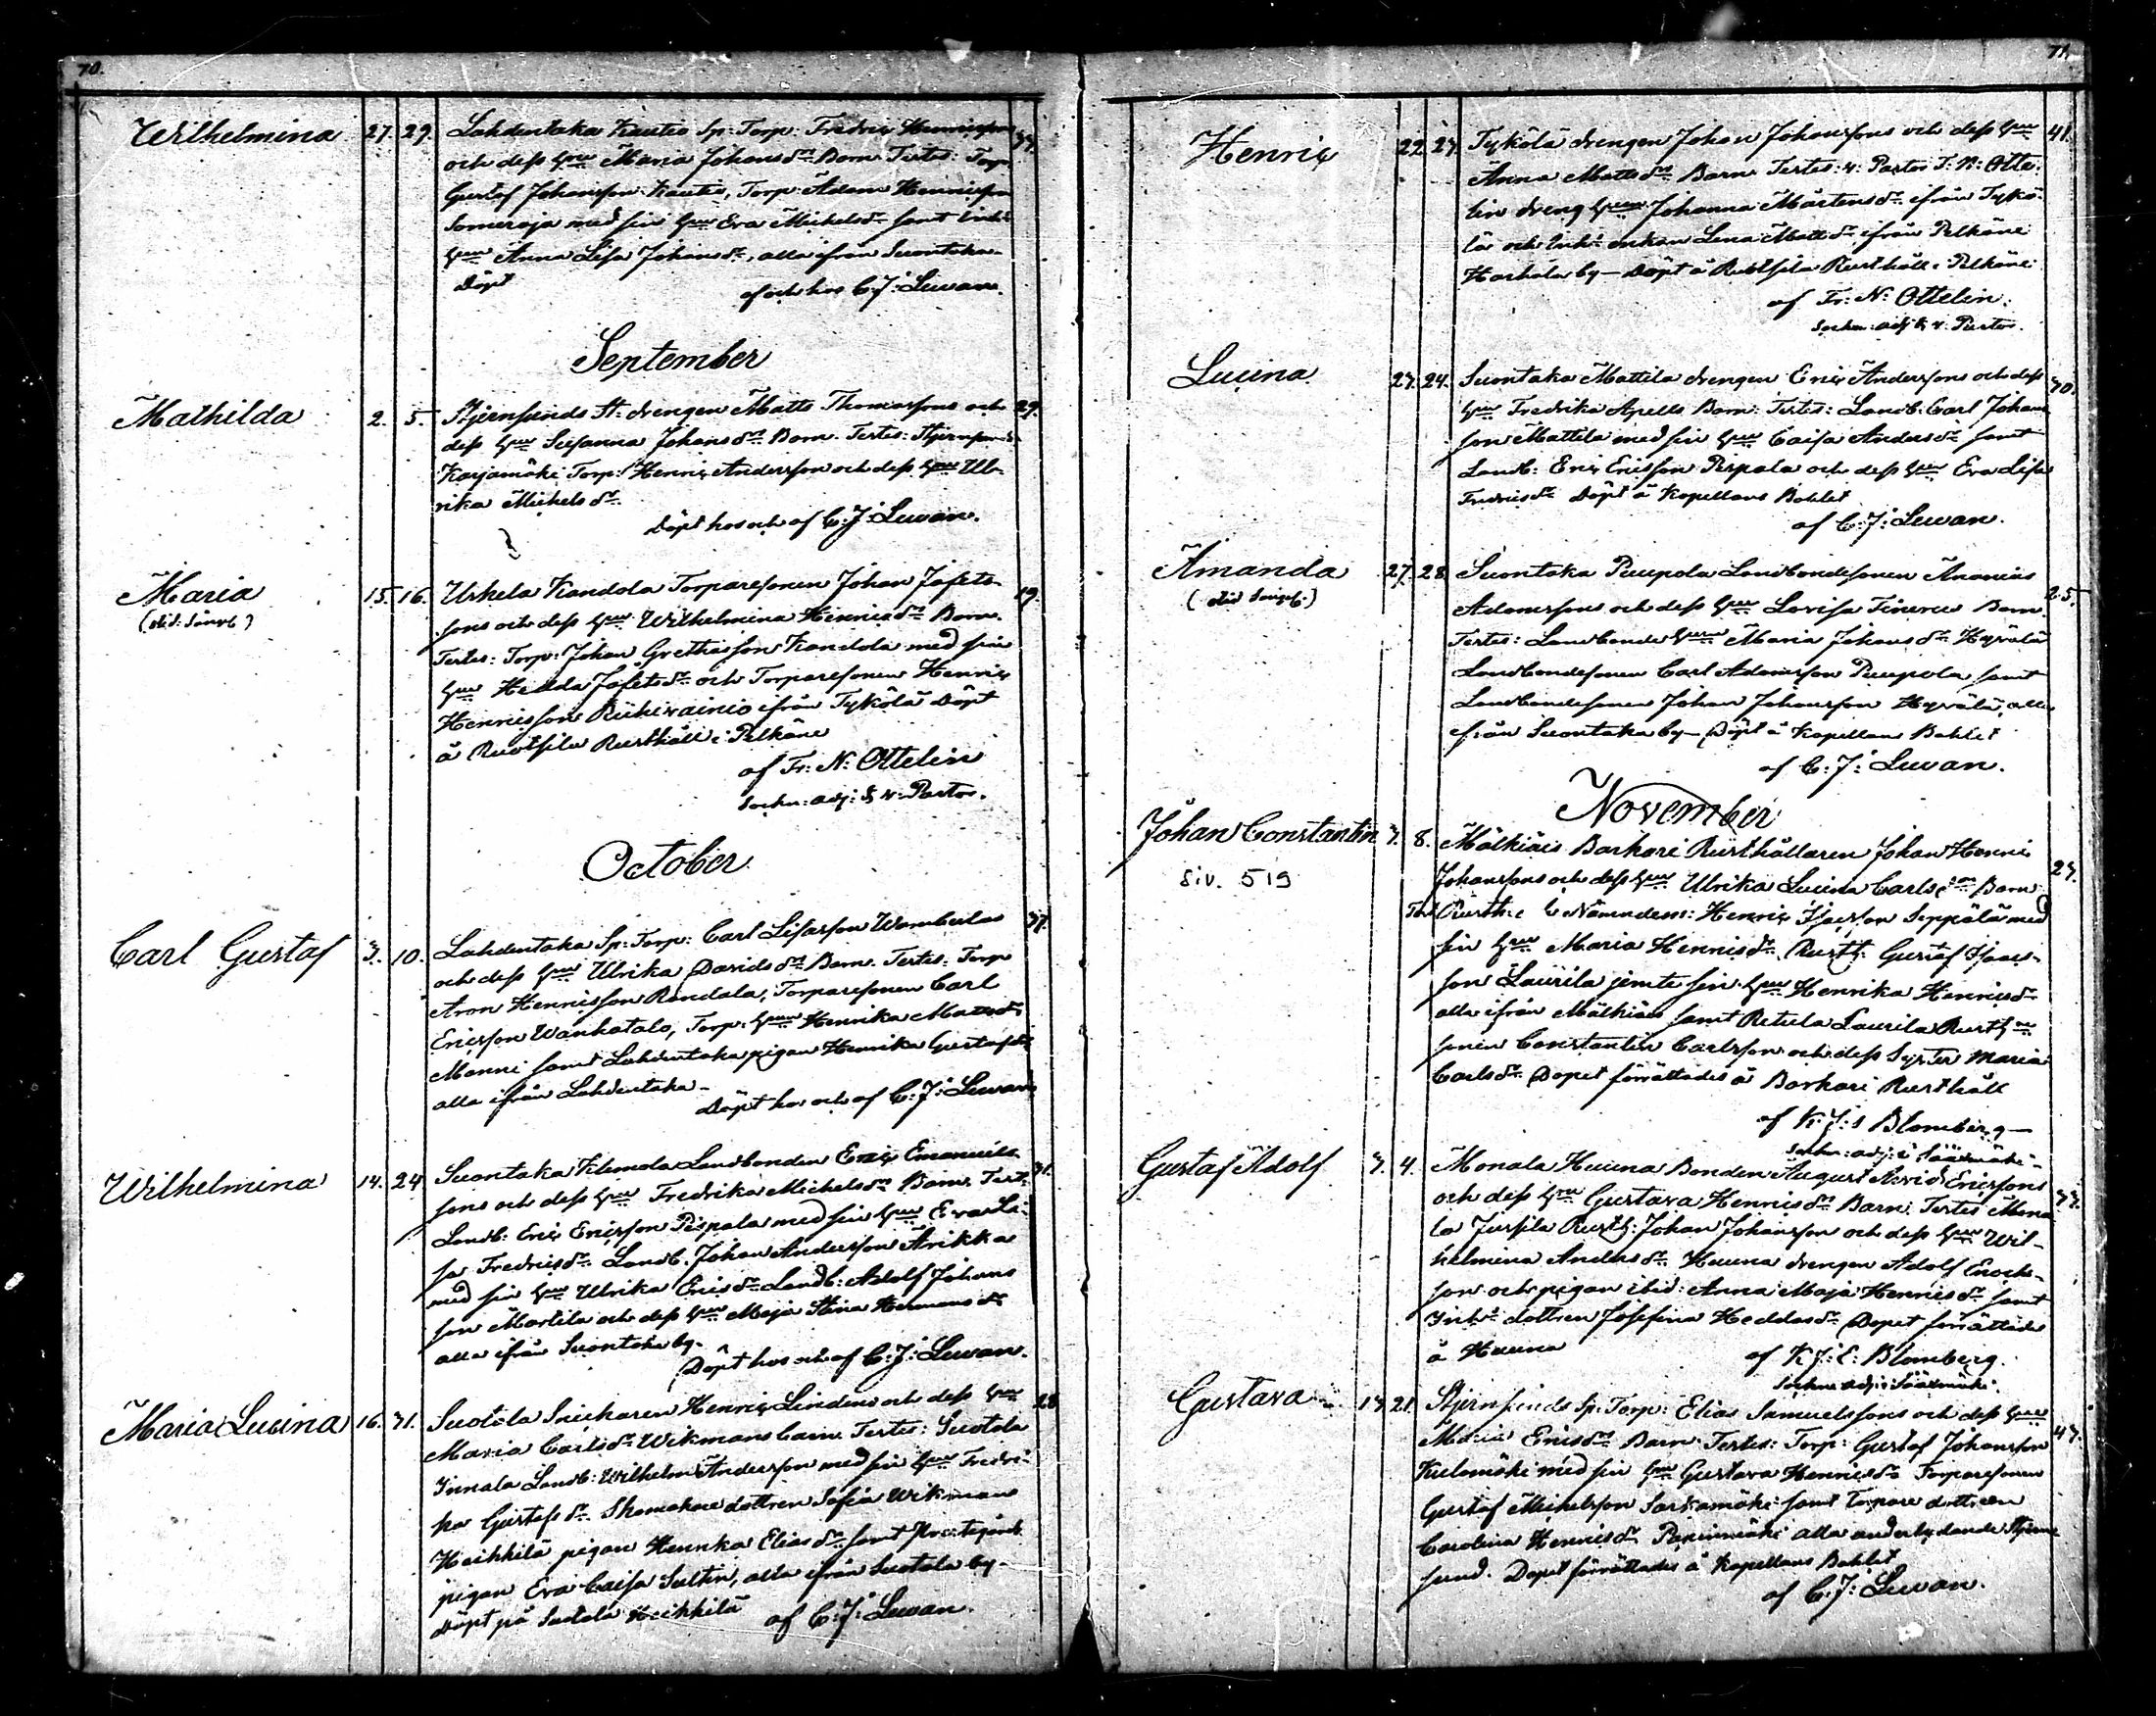 70.
Wilhelmina 27. 29. Lahdentaka Kautio Sp: Torp: Fredric Henricsons 37.
och dess hustru Maria Johans dr Barn. Testes: Torp:
Gustaf Johansson Kautio, Torp: Adam Henricsson
Someroja med sin hustru Eva Michels dr samt Inh:
hustru Anna Lisa Johans dr, alla ifrån Suontaka
Döpt
af och hos C: J: Lewan.
September
Mathilda 2. 5. Stjernsunds St: drengen Matts Thomassons och 29.
dess hustru Susanna Johans drs Barn. Testes: Stjernsunds
Karjamäki Torp: Henric Andersson och dess hustru Ulr-
rika Michels dr
Döpt hos och af C: J: Lewan.
Maria 15. 16. Urhela Kandola Torparesonen Johan Jafets- 19.
sons och dess hustru Wilhelmina Henrics drs Barn.
Testes: Torp: Johan Gretasson Kandola med sin
hustru Hedda Jafets dr och Torparesonen Henric
Henricsson Riihivainio ifrån Tykölä Döpt
å Ruotsila Rusthåll i Pelkäne
af Fr: N: Ottelin
Sockn: adj: & v: Pastor.
October
Carl Gustaf 3. 10. Lahdentaka Sp: Torp: Carl Lisasson Wambulas 37.
och dess hustru Ulrika Davids drs Barn. Testes: Torp
Aron Henricsson Randala, Torparesonen Carl
Ericsson Wanhatalo, Torp: hustrun Henrika Matts dr
Manni samt Lahdentaka pigan Henrika Gustafs dr
alla ifrån Lahdentaka-
Döpt hos och af C: J: Lewan
Wilhelmina 14. 24. Suontaka Klemola Landbonden Eric Emanuels- 31.
sons och dess hustru Fredrika Michels drs Barn. Test:
Landb: Eric Ericsson Pispala med sin hustru Eva Li-
sa Fredrics dr Landb. Johan Andersson Arikka
med sin hustru Ulrika Erics dr Landb: Adolf Johans
son Martila och dess hustru Maja Stina Hermans dr
alla ifrån Suontaka by-
Döpt hos och af C: J: Lewan.
Maria Lucina 16. 31. Suotola Snickaren Henric Lindens och dess hustru 28
Maria Carls dr Wikmans barn. Testes: Suotola
Innala Landb: Wilhelm Andersson med sin hustru Fredri-
ka Gustafs dr Skomakare dottren Sofia Wikman
Heikkilä pigan Henrika Elias dr samt
pigan Eva Caisa Sultin, alla ifrån Suotola by-
Döpt på Suotola Heikkilä af C: J: Lewan.
71.
Henric 22. 23. Tykölä drengen Johan Johanssons och dess hustru 41.
Anna Matts drs Barn. Testes: v: Pastor F: N: Otte-
lin dreng hustrun Johanna Mårtens dr ifrån Tykö-
lä och Inh: enkan Lena Matts dr ifrån Pelkäne
Harhala by- Döpt å Ruotsila Rusthåll i Pelkäne
af Fr: N: Ottelin.
Sockn: adj: & v: Pastor.
Lucina 23. 24. Suontaka Mattila drengen Eric Anderssons och dess 30.
hustru Fredrika Apells Barn: Testes: Landb: Carl Johans
son Mattila med sin hustru Caisa Anders dr samt
Landb: Eric Ericsson Pispala och dess hustru Eva Lisa
Fredrics dr Döpt å Kapellans Bohlet
af C: J: Lewan.
Amanda 27. 28. Suontaka Puupola Landbondesonen Ananias 25.
Adamssons och dess hustru Lovisa Finérus Barn.
Testes: Landbonde hustrun Maria Johans dr Hyvälä
Landbondesonen Carl Adamsson Puupola samt
Landbondesonen Johan Johansson Hyvälä, alla
ifrån Suontaka by- Döpt å Kapellans Bohlet
af C: J: Lewan.
November
Johan Constantin 3. 8. Mälkiäis Barkari Rusthållaren Johan Henric 23.
siv. 519
Johanssons och dess hustru Ulrika Lucina Carls drs Barn
Test: Rusth: & Nämndem: Henric Isacsson Seppälä med
sin hustru Maria Henrics dr Rusth: Gustaf Isacs-
son Laurila jemte sin hustru Henrika Henrics dr
alla ifrån Mälkiäis samt Retula Laurila Rusth:
sonen Constantin Carlsson och dess Syster Maria
Carls dr Dopet förrättades å Barkari Rusthåll
af K: J: E: Blomberg-
Sockn: adj: i Sääxmäki-
Gustaf Adolf 3. 4. Monala Huuna Bonden August Arvid Ericssons 33.
och dess hustru Gustava Henrics drs Barn. Testes Mona
la Jussila Rusth: Johan Johansson och dess hustru Wil-
helmina Anders dr Huuna drengen Adolf Enochs-
son och pigan ibid: Anna Maja Henrics dr samt
Inh: dottren Josefina Heddas dr Dopet förrättades
å Huuna
af K: J: E: Blomberg.
Sockne adj: i Sääxmäki.
Gustava 13. 21. Stjernsunds Sp: Torp: Elias Samuelssons och dess hustru 43.
Maria Erics drs Barn. Testes: Torp: Gustaf Johansson
Kulomäki med sin hustru Gustava Henrics dr Torparesonen
Gustaf Michelsson Sarkamäki samt Torpare dottren
Carolina Henrics dr alla underlydande Stjern
sund. Dopet förrättades å Kapellans Bohlet
af C: J: Lewan.